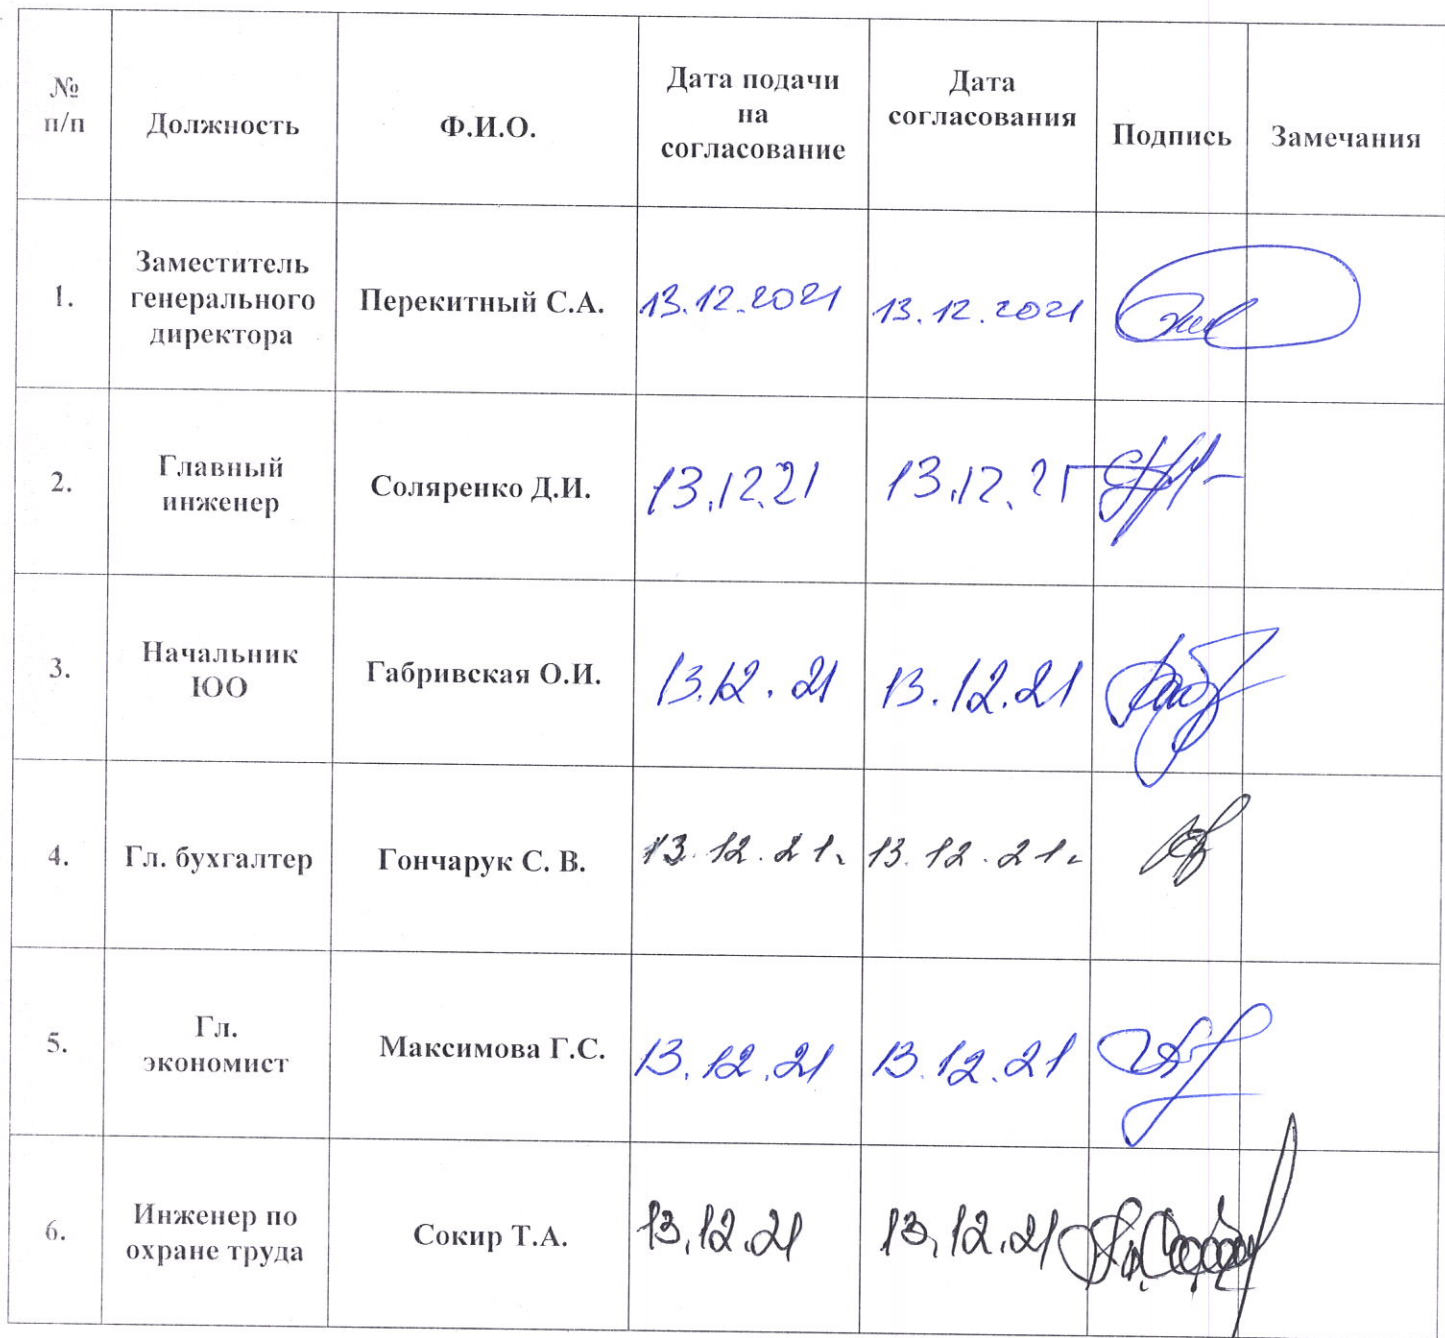 №
п/п
Должность
Ф.И.О.
Дата подачи
на
согласование
Дата
согласования
Подпись
Замечания
1.
Заместитель
генерального
директора
Перекитный С.А.
13.12.2021
13.12.2021
2.
Главный
инженер
Соляренко Д.И.
13.12.21
13.12.21
3.
Начальник
ЮО
Габривская О.И.
13.12.21
13.12.21
4.
Гл. бухгалтер
Гончарук С. В.
13.12.21.
13.12.21.
5.
Гл.
экономист
Максимова Г.С.
13.12.21
13.12.21
6.
Инженер по
охране труда
Сокир Т.А.
13.12.21
13.12.21